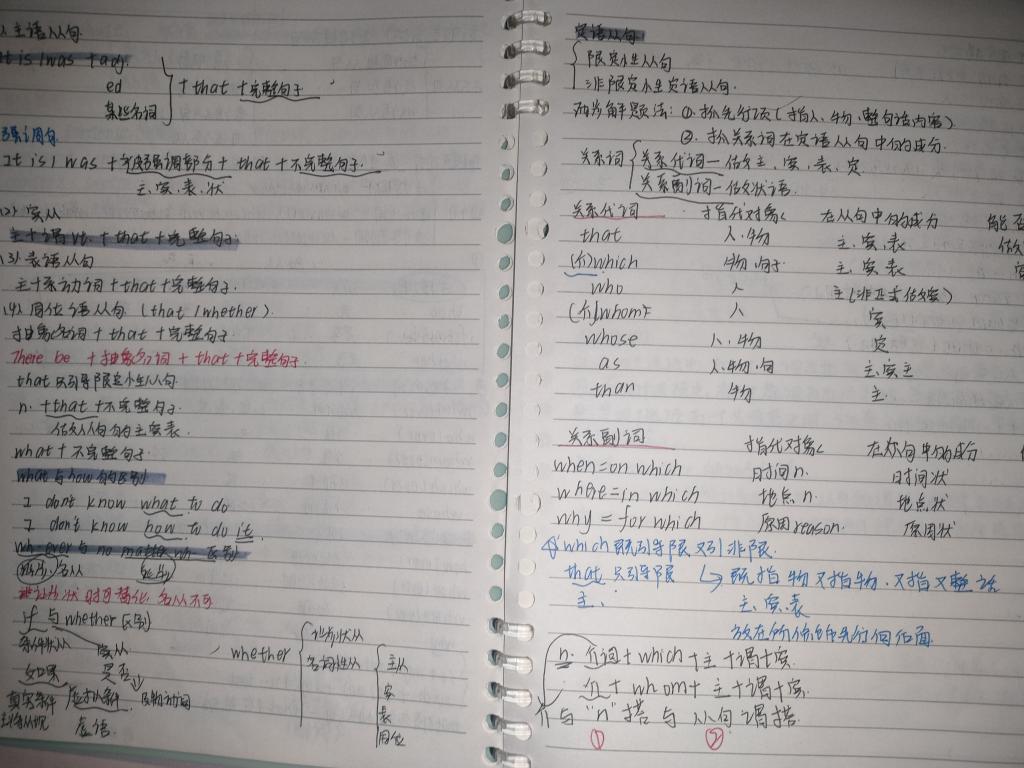 主语从句
It is / was + adj.
ed
某些名词
+ that + 完整句子
强调句
It is / was + 被强调部分 + that + 不完整句子
主、宾、表、状
(2) 宾从
主 + 谓 vt. + that + 完整句子
(3) 表语从句
主 + 系动词 + that + 完整句子
(4) 同位语从句 (that / whether)
抽象名词 + that + 完整句子
There be + 抽象名词 + that + 完整句子
that 只引导限定性从句
n. + that + 不完整句子
做从句的主宾表
what + 不完整句子
what 与 how 的区别
I don't know what to do
I don't know how to do it.
wh-ever 与 no matter wh- 区别
名从
状时可替化, 名从不可
if 与 whether 区别
条件状从 宾从
如果 是否
真实条件
虚语
whether
状从
名词性从
主从
宾
表
同位
定语从句
限定性从句
非限定性定语从句
两步解题法: ①. 抓先行项 (指人、物、整句话内容)
②. 抓关系词在定语从句中的成分
关系词
关系代词 — 做主、宾、表、定
关系副词 — 做状语
关系代词 指代对象 在从句中的成分 能否
that 人、物 主、宾、表
(介)which 物、句子 主、宾、表
who 人 主(非正式做宾)
(介)whom 人 宾
whose 人、物 定
as 人、物、句 主、宾
than 物 主
关系副词 指代对象 在从句中的成分
when = on which 时间n. 时间状
where = in which 地点n. 地点状
why = for which 原因reason. 原因状
which 既引导限又引非限.
that 只引导限 既指物
主、 主、宾、表
放在所修饰先行词后面
n. 介词 + which + 主 + 谓 + 宾
介 + whom + 主 + 谓 + 宾
介与 "n" 搭与从句谓搭
① ②